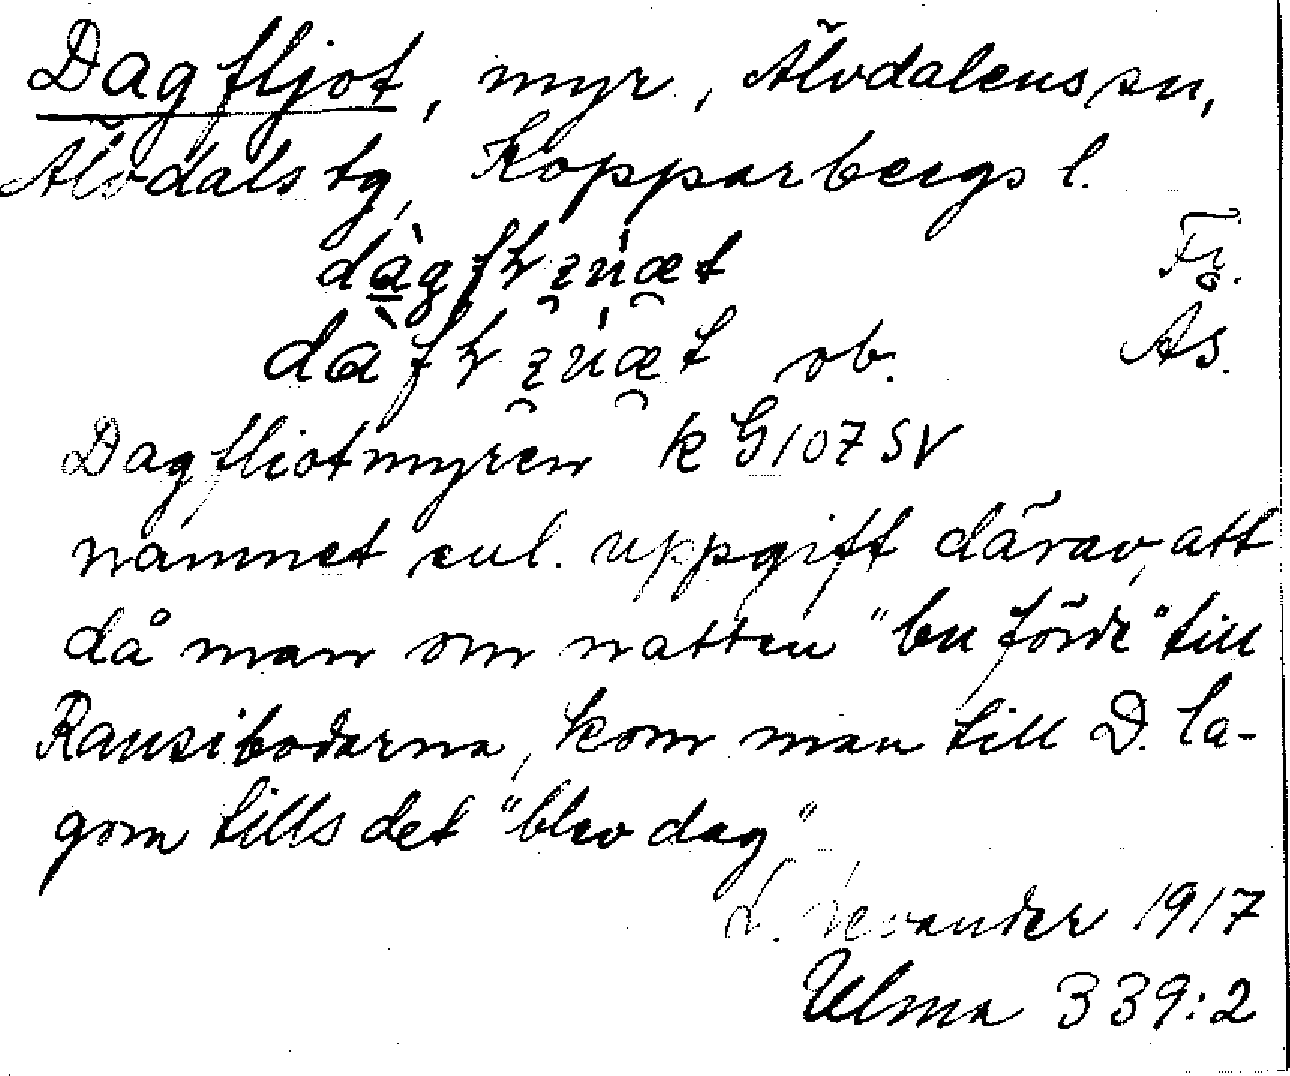 Dagfljot, myr, Älvdalens sn,
Älvdals tg, Kopparbergs l.
Fr.
ob. As.
Dagfliotmyren k G 107 SV
namnet enl. uppgift därav, att
då man om natten "bu förde" till
Ransibodarna, kom man till D. la-
gom tills det "blev dag"
L. Levander 1917
Ulma 339:2